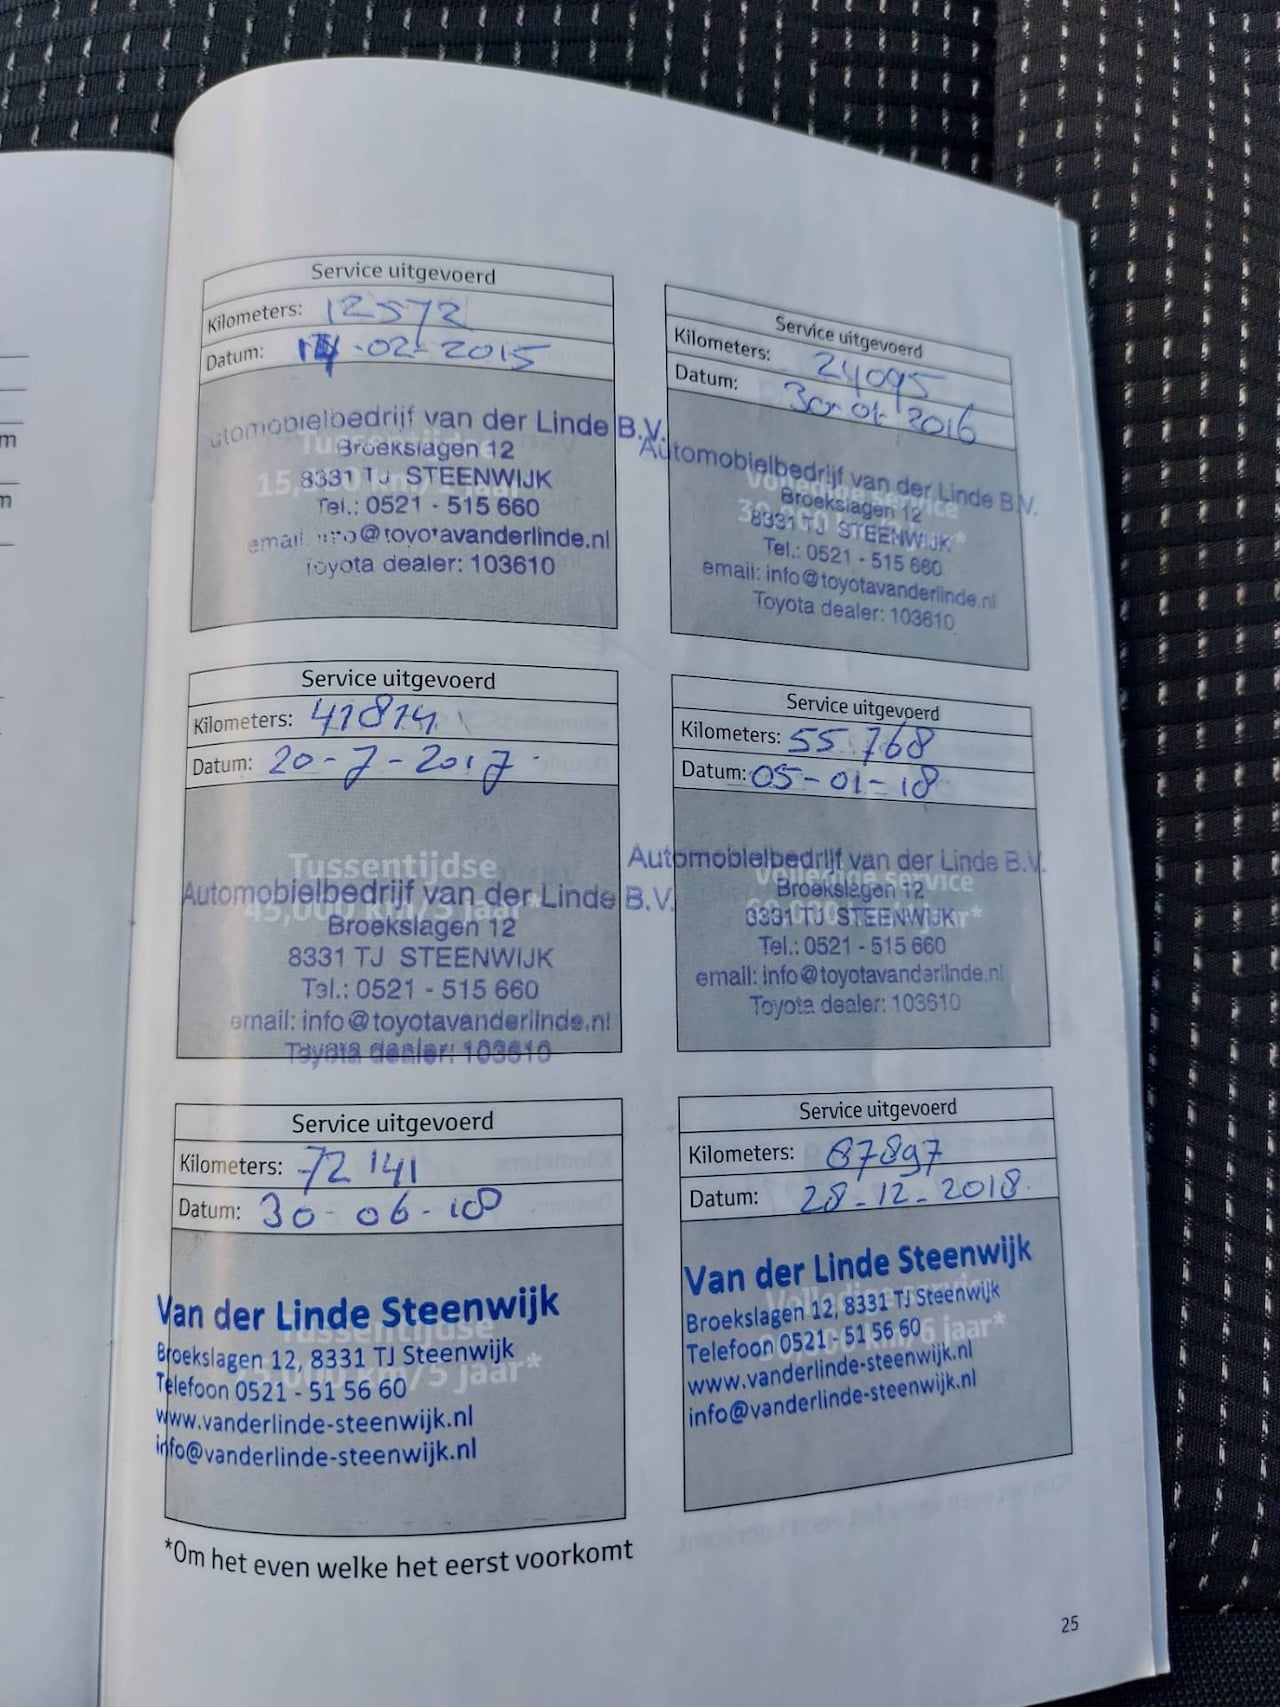 Service uitgevoerd
Kilometers: 12572
Datum: -02-2015
Tussentijdse
Automobielbedrijf van der Linde B.V.
Broekslagen 12
8331 TJ STEENWIJK
Tel.: 0521 - 515 660
email: info@toyotavanderlinde.nl
Toyota dealer: 103610
Service uitgevoerd
Kilometers: 24095
Datum: 30-01 2016
Volledige service
Automobielbedrijf van der Linde B.V.
Broekslagen 12
8331 TJ STEENWIJK
Tel.: 0521 - 515 660
email: info@toyotavanderlinde.nl
Toyota dealer: 103610
Service uitgevoerd
Kilometers: 41814
Datum: 20-7-2017
Tussentijdse
45,000 km/3 jaar*
Automobielbedrijf van der Linde B.V.
Broekslagen 12
8331 TJ STEENWIJK
Tel.: 0521 - 515 660
email: info@toyotavanderlinde.nl
Toyota dealer: 103610
Service uitgevoerd
Kilometers: 55.768
Datum: 05-01-18
Volledige service
Automobielbedrijf van der Linde B.V.
Broekslagen 12
8331 TJ STEENWIJK
Tel.: 0521 - 515 660
email: info@toyotavanderlinde.nl
Toyota dealer: 103610
Service uitgevoerd
Kilometers: 72141
Datum: 30-06-18
Tussentijdse
75,000 km/5 jaar*
Van der Linde Steenwijk
Broekslagen 12, 8331 TJ Steenwijk
Telefoon 0521 - 51 56 60
www.vanderlinde-steenwijk.nl
info@vanderlinde-steenwijk.nl
Service uitgevoerd
Kilometers: 87897
Datum: 28-12-2018.
Volledige service
90,000 km/6 jaar*
Van der Linde Steenwijk
Broekslagen 12, 8331 TJ Steenwijk
Telefoon 0521 - 51 56 60
www.vanderlinde-steenwijk.nl
info@vanderlinde-steenwijk.nl
*Om het even welke het eerst voorkomt
25